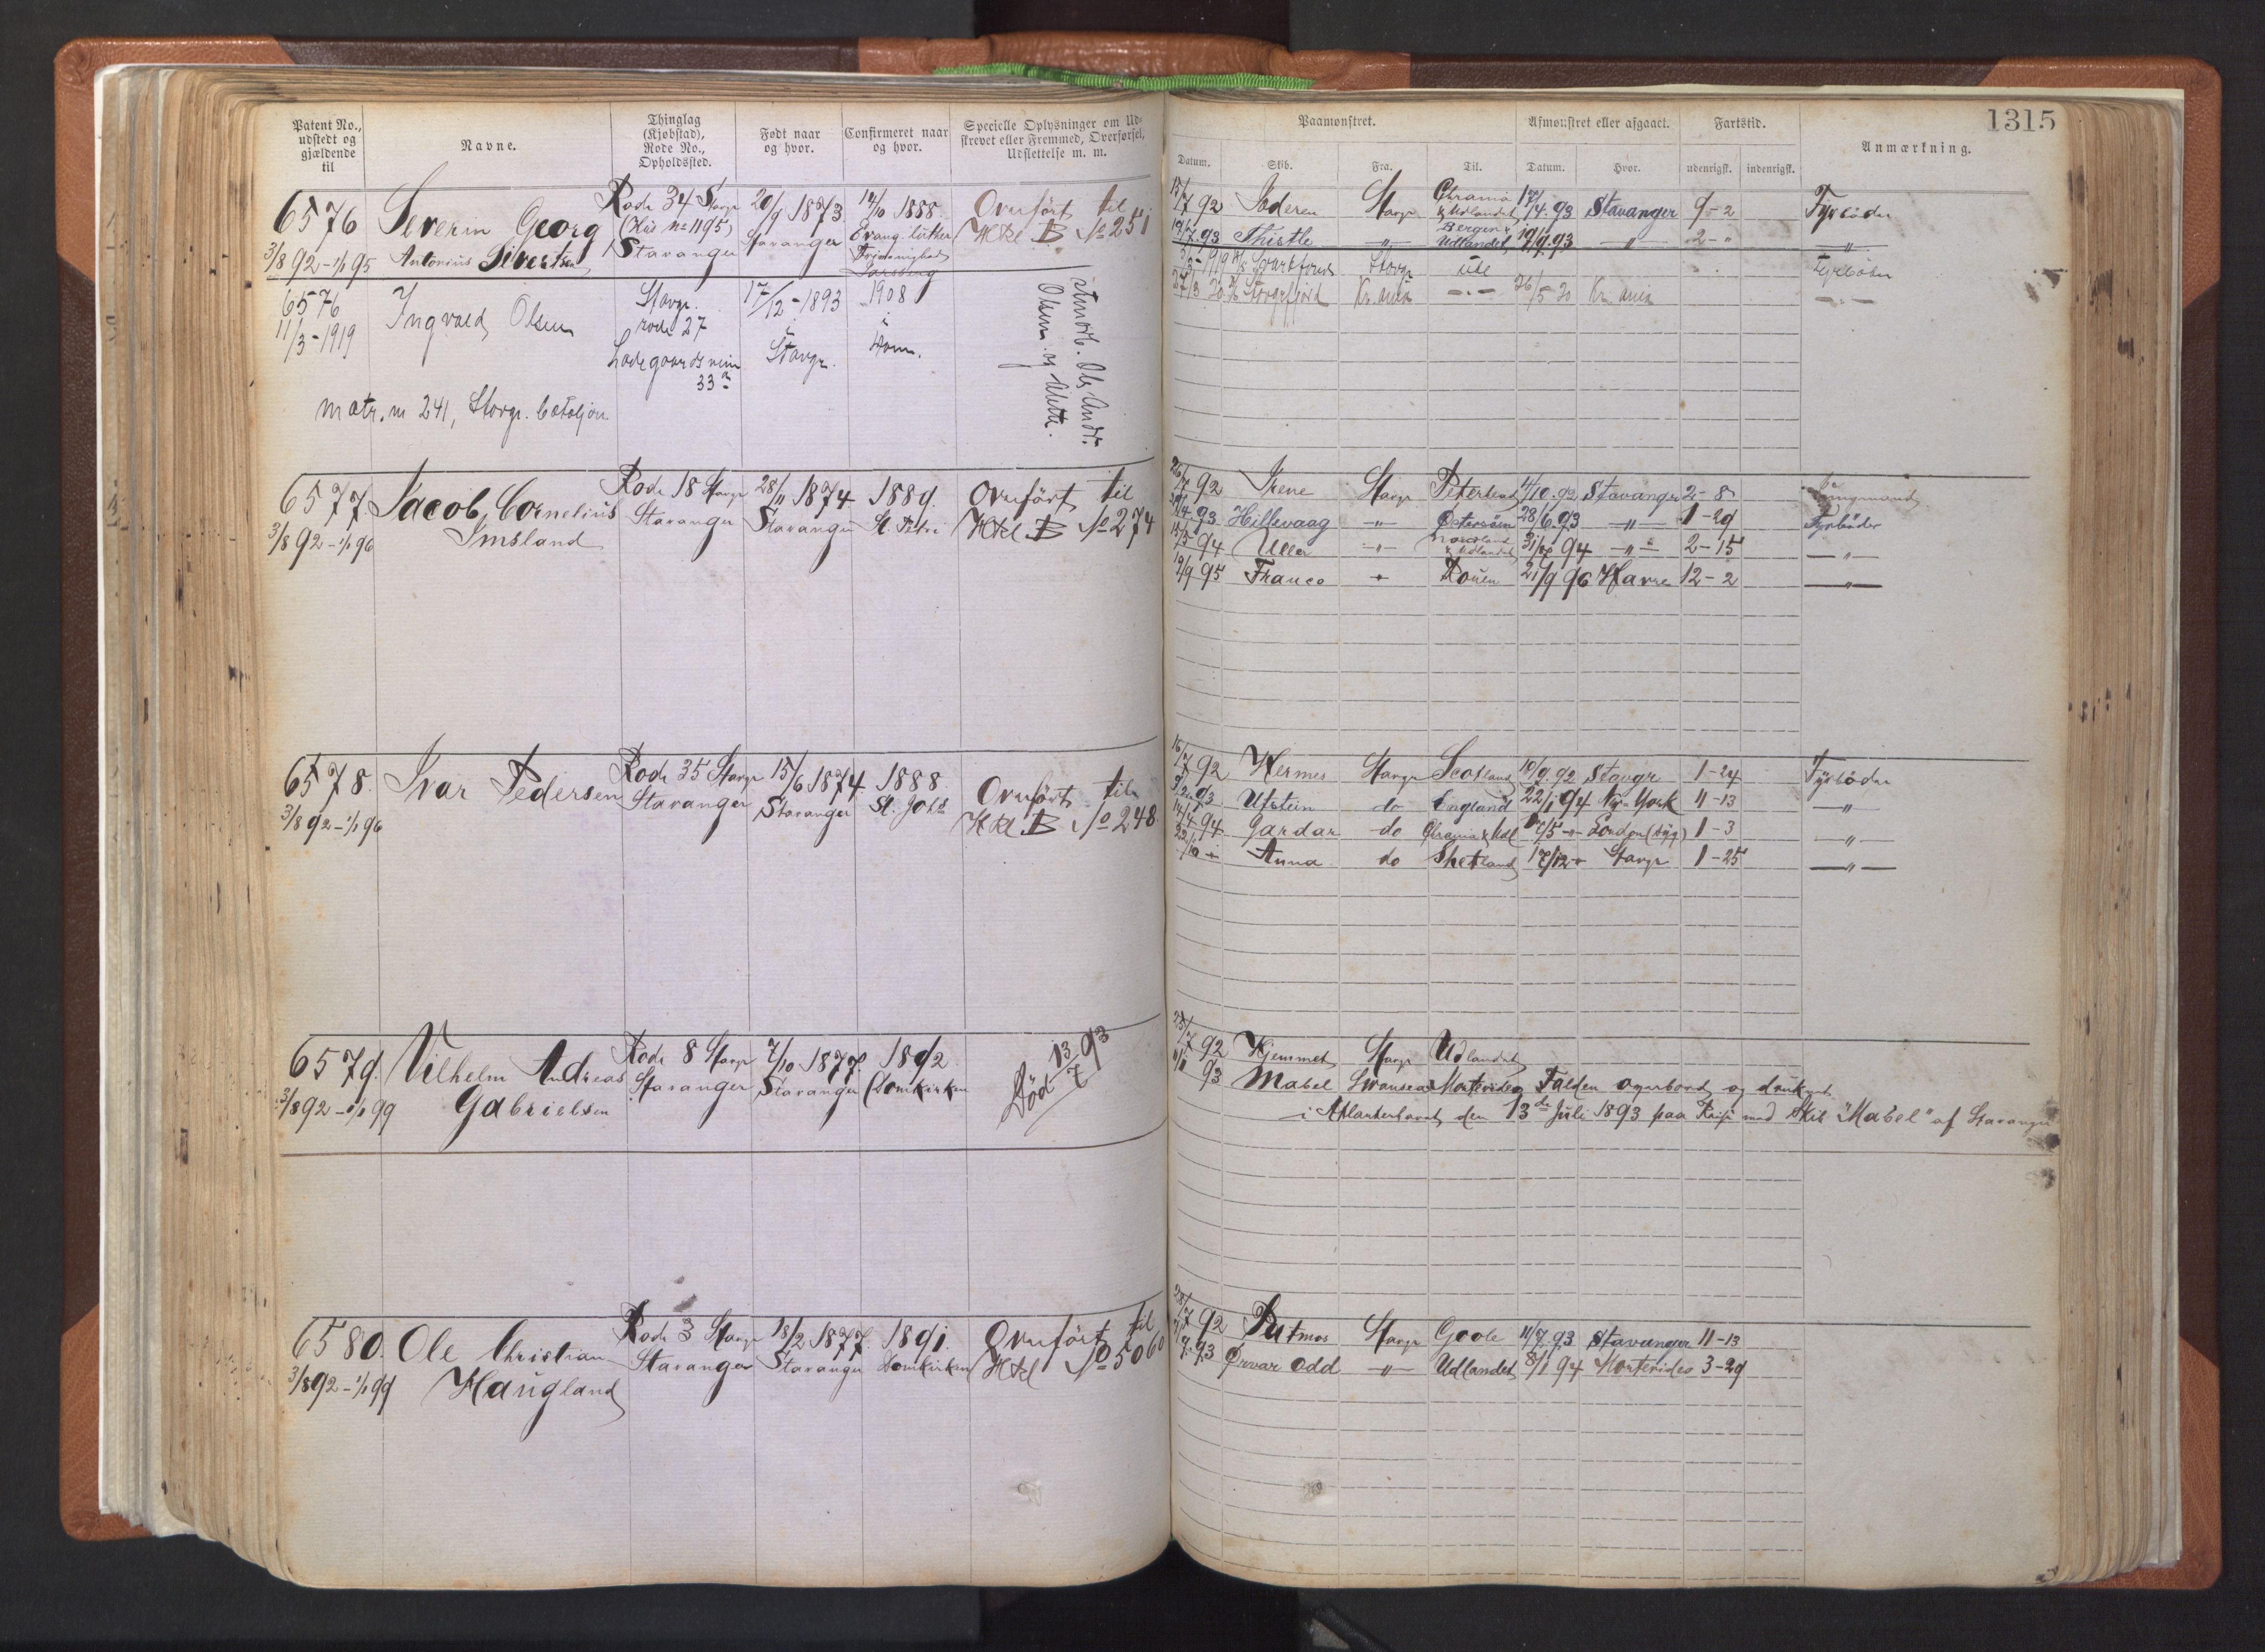 1315
Patent No., udstedt og gjældende til
Navne.
Thinglag (Kjøbstad), Rode No., Opholdssted.
Født naar og hvor.
Confirmeret naar og hvor.
Specielle Oplysninger om Udskrevet eller Fremmed, Overførsel, Udslettelse m. m.
Paamønstret.
Afmønstret eller afgaaet.
Fartstid.
Anmærkning.
Datum. Skib. Fra. Til. Datum. Hvor. udenrigsk. indenrigsk.
6576 Severin Georg Rode 34 Stavgr 20/9 1873 14/10 1888. Overført til
3/8 92 - 1/1 95 Antonius Sivertsen (Hus no 1195) Stavanger Stavanger Evang. luther HRl B No 251
Frimenighed
15/7 92 Jæderen Stavgr Chrania & Udlandet 17/4. 93 Stavanger 9-2 Fyrbøder
19/7 93 Thistle " Bergen & Udlandet 19/9. 93 " 2-" "
6576 Ingvald Olsen Stavgr. 17/12 - 1893 1908
11/3-1919 rode 27 i i
Ladegaardsveien Stavgr. Dom.
33 a
matr. nr 241, Stavgr. bataljon
Olsen og Mette.
Stavgr ute Fyrbøder
Kr.ania 26/5 20 Kr.ania
6577 Jacob Cornelius Rode 18 Stavgr 28/11 1874 1889. Overført til
3/8 92 - 1/1 96 Imsland Stavanger Stavanger St. Petri HRl B No 274
26/7 92 Irene Stavgr Peterhead 4/10. 92 Stavanger 2-8 Jungmand
29/4 93 Hillevaag " Østersøen 28/6. 93 " 1-29 Fyrbøder
15/5 94 Uller " Nordland & Udlandet 94 " 2-15 "
19/9 95 Franco " Rouen 21/9 96 Havre 12-2 "
6578. Ivar Pedersen Rode 35 Stavgr 15/6 1874 1888 Overført til
3/8 92 - 1/1 96 Stavanger Stavanger St. Johs HRl B No 248
16/7 92 Hermes Stavgr Scotland 10/9. 92 Stavgr 1-24 Fyrbøder
93 Utstein do England 22/1 94 New-York 11-13 "
14/4 94 Gardar do Chrania & Udl /5 " London 1-3 "
22/10 " Anna do Shetland 17/12 " Stavgr 1-25 "
6579. Vilhelm Andreas Rode 8 Stavgr 7/10 1877. 1892 Død 13/7 93
3/8 92 - 1/1 99 Gabrielsen Stavanger Stavanger Domkirken
25/7 92 Hjemmet Stavgr Udlandet
93 Mabel Swansea Montevideo Falden overbord og druknet
i Atlanterhavet den 13de Juli 1893 paa Reise med Skib "Mabel" af Stavanger
6580. Ole Christian Rode 3 Stavgr 18/2 1877. 1891. Overført til
3/8 92 - 1/1 99 Haugland Stavanger Stavanger Domkirken HRl No 5060
28/7 92 Patmos Stavgr Goole 11/7. 93 Stavanger 11-13
93 Ørvar Odd " Udlandet 8/1 94 Montevideo 3-29